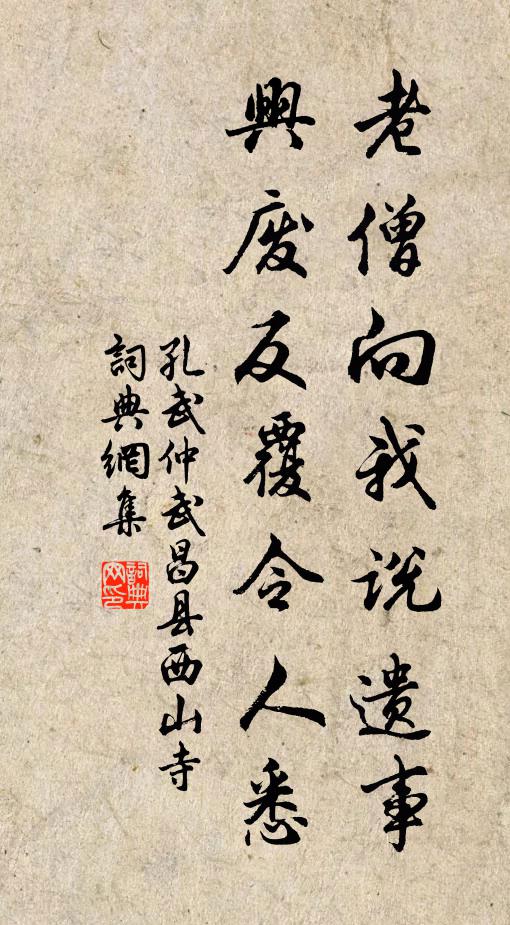 老僧向我说遗事
興废反覆令人悉
孔武仲武昌县西山寺
詞典網集
詞典网印